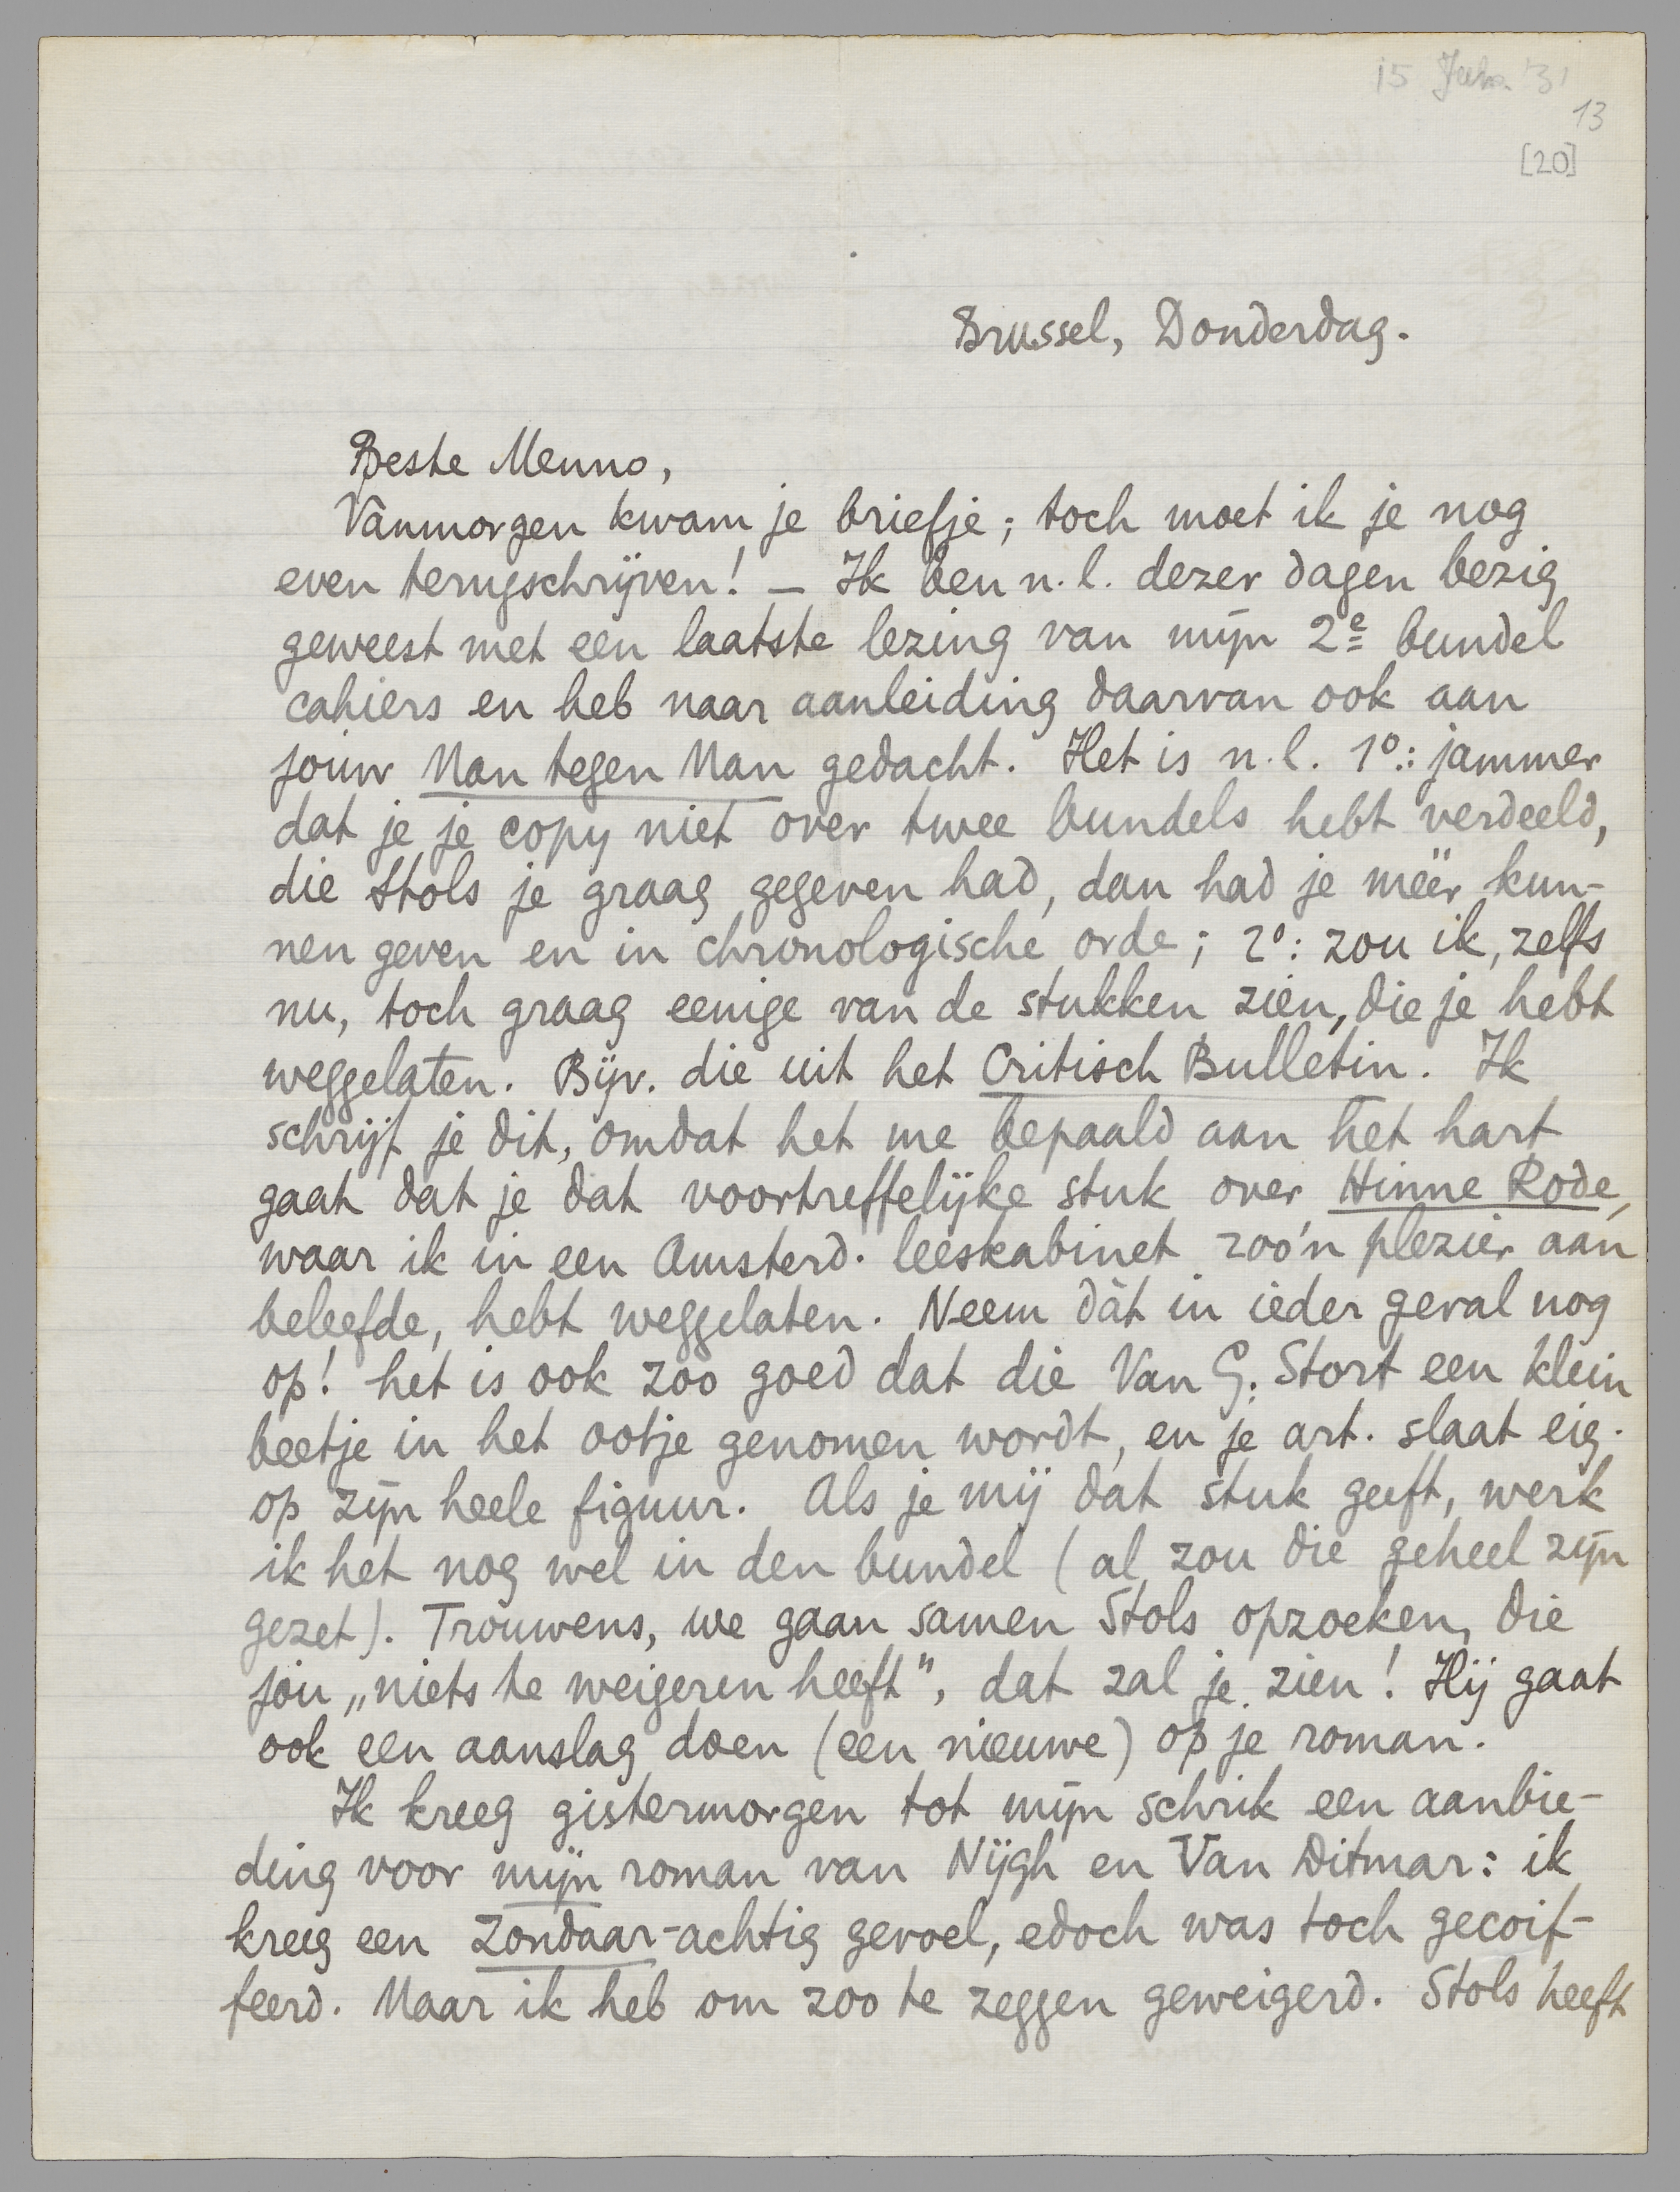 15 Jan. '31
13
[20]
Brussel, Donderdag.
Beste Menno,
Vanmorgen kwam je briefje; toch moet ik je nog
even terugschrijven! — Ik ben n.l. dezer dagen bezig
geweest met een laatste lezing van mijn 2e bundel
cahiers en heb naar aanleiding daarvan ook aan
jouw Man tegen Man gedacht. Het is n.l. 1º: jammer
dat je je copy niet over twee bundels hebt verdeeld,
die Stols je graag gegeven had, dan had je méér kun-
nen geven en in chronologische orde; 2º: zou ik, zelfs
nu, toch graag eenige van de stukken zien, die je hebt
weggelaten. Bijv. die uit het Critisch Bulletin. Ik
schrijf je dit, omdat het me bepaald aan het hart
gaat dat je dat voortreffelijke stuk over Hinne Rode,
waar ik in een Amsterd. leeskabinet zoo'n plezier aan
beleefde, hebt weggelaten. Neem dàt in ieder geval nog
op! het is ook zoo goed dat die Van G. Stort een klein
beetje in het ootje genomen wordt, en je art. slaat eig.
op zijn heele figuur. Als je mij dat stuk geeft, werk
ik het nog wel in den bundel (al zou die geheel zijn
gezet). Trouwens, we gaan samen Stols opzoeken, die
jou „niets te weigeren heeft", dat zal je zien! Hij gaat
ook een aanslag doen (een nieuwe) op je roman.
Ik kreeg gistermorgen tot mijn schrik een aanbie-
ding voor mijn roman van Nijgh en Van Ditmar: ik
kreeg een zondaar-achtig gevoel, edoch was toch gecoif-
feerd. Maar ik heb om zoo te zeggen geweigerd. Stols heeft